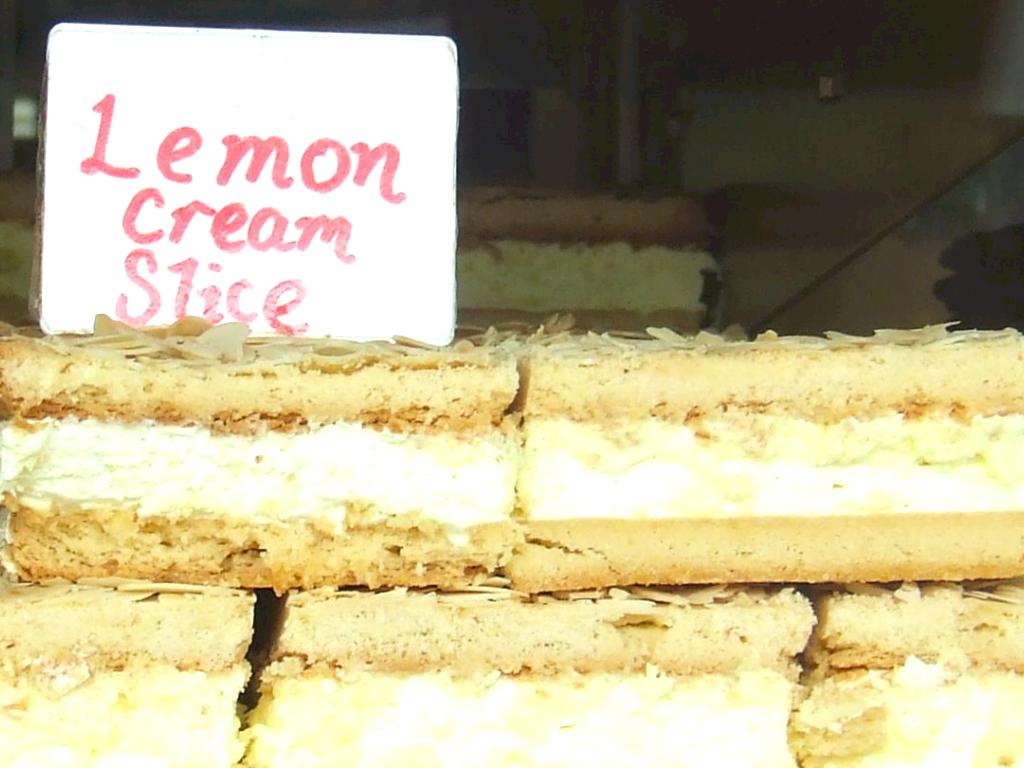 Lemon
cream
Slice